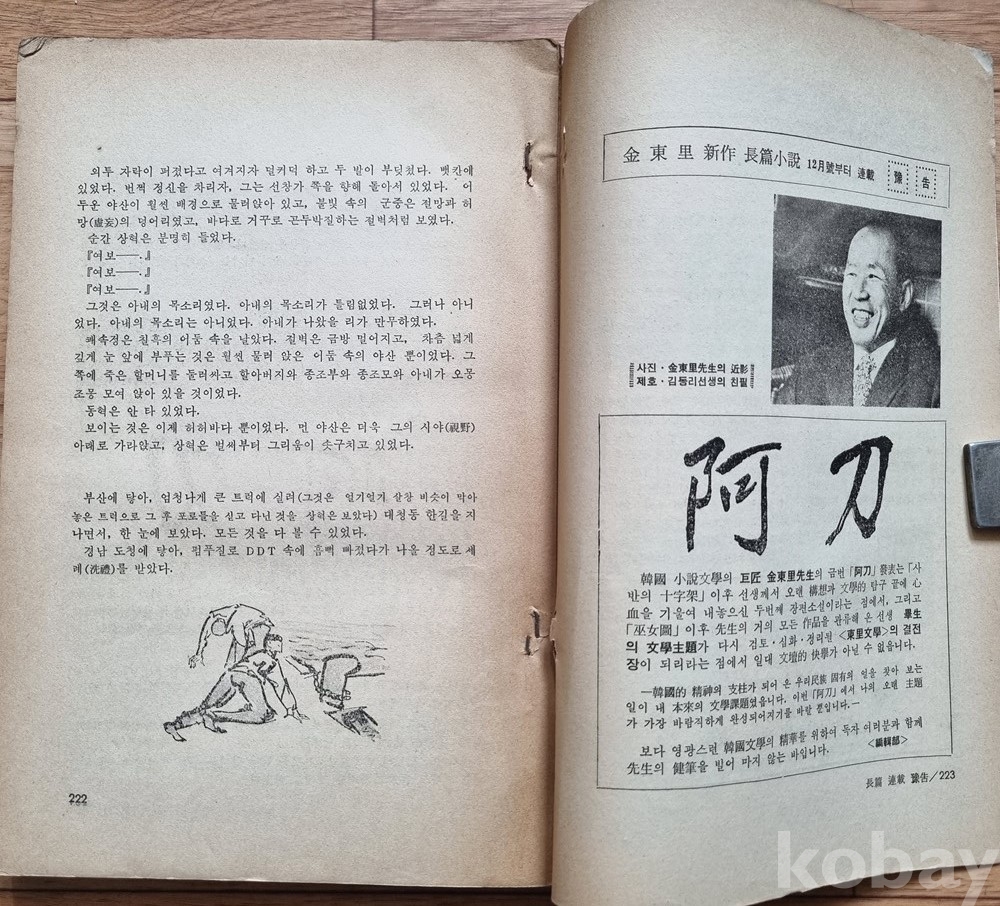 외투 자락이 펴졌다고 여겨지자 덜커덕 하고 두 발이 부딪쳤다. 뱃칸에
있었다. 번쩍 정신을 차리자, 그는 선창가 쪽을 향해 돌아서 있었다. 어
두운 야산이 훨씬 배경으로 물러앉아 있고, 불빛 속의 군중은 절망과 허
망(虛妄)의 덩어리였고, 바다로 거꾸로 곤두박질하는 절벽처럼 보였다.
순간 상혁은 분명히 들었다.
『여보──.』
『여보──.』
『여보──.』
그것은 아내의 목소리였다. 아내의 목소리가 틀림없었다. 그러나 아니
었다. 아내의 목소리는 아니었다. 아내가 나왔을 리가 만무하였다.
쾌속정은 칠흑의 어둠 속을 날았다. 절벽은 금방 멀어지고, 차츰 넓게
깊게 눈 앞에 부푸는 것은 훨씬 물러 앉은 어둠 속의 야산 뿐이었다. 그
쪽에 죽은 할머니를 둘러싸고 할아버지와 종조부와 종조모와 아내가 오몽
조몽 모여 앉아 있을 것이었다.
동혁은 안 타 있었다.
보이는 것은 이제 허허바다 뿐이었다. 먼 야산은 더욱 그의 시야(視野)
아래로 가라앉고, 상혁은 벌써부터 그리움이 솟구치고 있었다.
부산에 닿아, 엄청나게 큰 트럭에 실려(그것은 얼기얼기 살창 비슷이 막아
놓은 트럭으로 그 후 포로들을 싣고 다닌 것을 상혁은 보았다) 대청동 한길을 지
나면서, 한 눈에 보았다. 모든 것을 다 볼 수 있었다.
경남 도청에 닿아, 펌푸질로 DDT 속에 흠뻑 빠졌다가 나올 정도로 세
례(洗禮)를 받았다.
222
金東里 新作 長篇小説 12月號부터 連載 豫告
사진·金東里先生의 近影
제호·김동리선생의 친필
阿刀
韓國 小説文學의 巨匠 金東里先生의 금번 「阿刀」發表는 「사
반의 十字架」이후 선생께서 오랜 構想과 文學的 탐구 끝에 心
血을 기울여 내놓으신 두번째 장편소설이라는 점에서, 그리고
「巫女圖」이후 先生의 거의 모든 作品을 관류해 온 선생 畢生
의 文學主題가 다시 검토·심화·정리된 <東里文學>의 결전
장이 되리라는 점에서 일대 文壇的 快擧가 아닐 수 없읍니다.
—韓國的 精神의 支柱가 되어 온 우리民族 固有의 얼을 찾아 보는
일이 내 本來의 文學課題였읍니다. 이번 「阿刀」에서 나의 오랜 主題
가 가장 바람직하게 완성되어지기를 바랄 뿐입니다.—
보다 영광스런 韓國文學의 精華를 위하여 독자 여러분과 함께
先生의 健筆을 빌어 마지 않는 바입니다. <編輯部>
長篇 連載 豫告/223
kobay